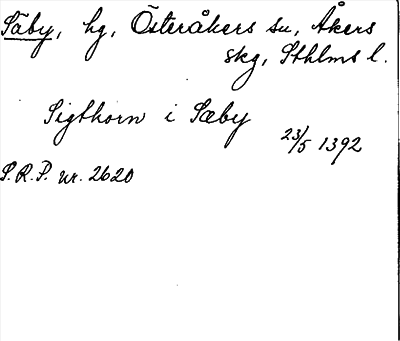 Säby, hg, Österåkers sn, Åkers
skg, Sthlms l.
Sigthorn i Sæby
23/5 1392
S.R.P. nr. 2620